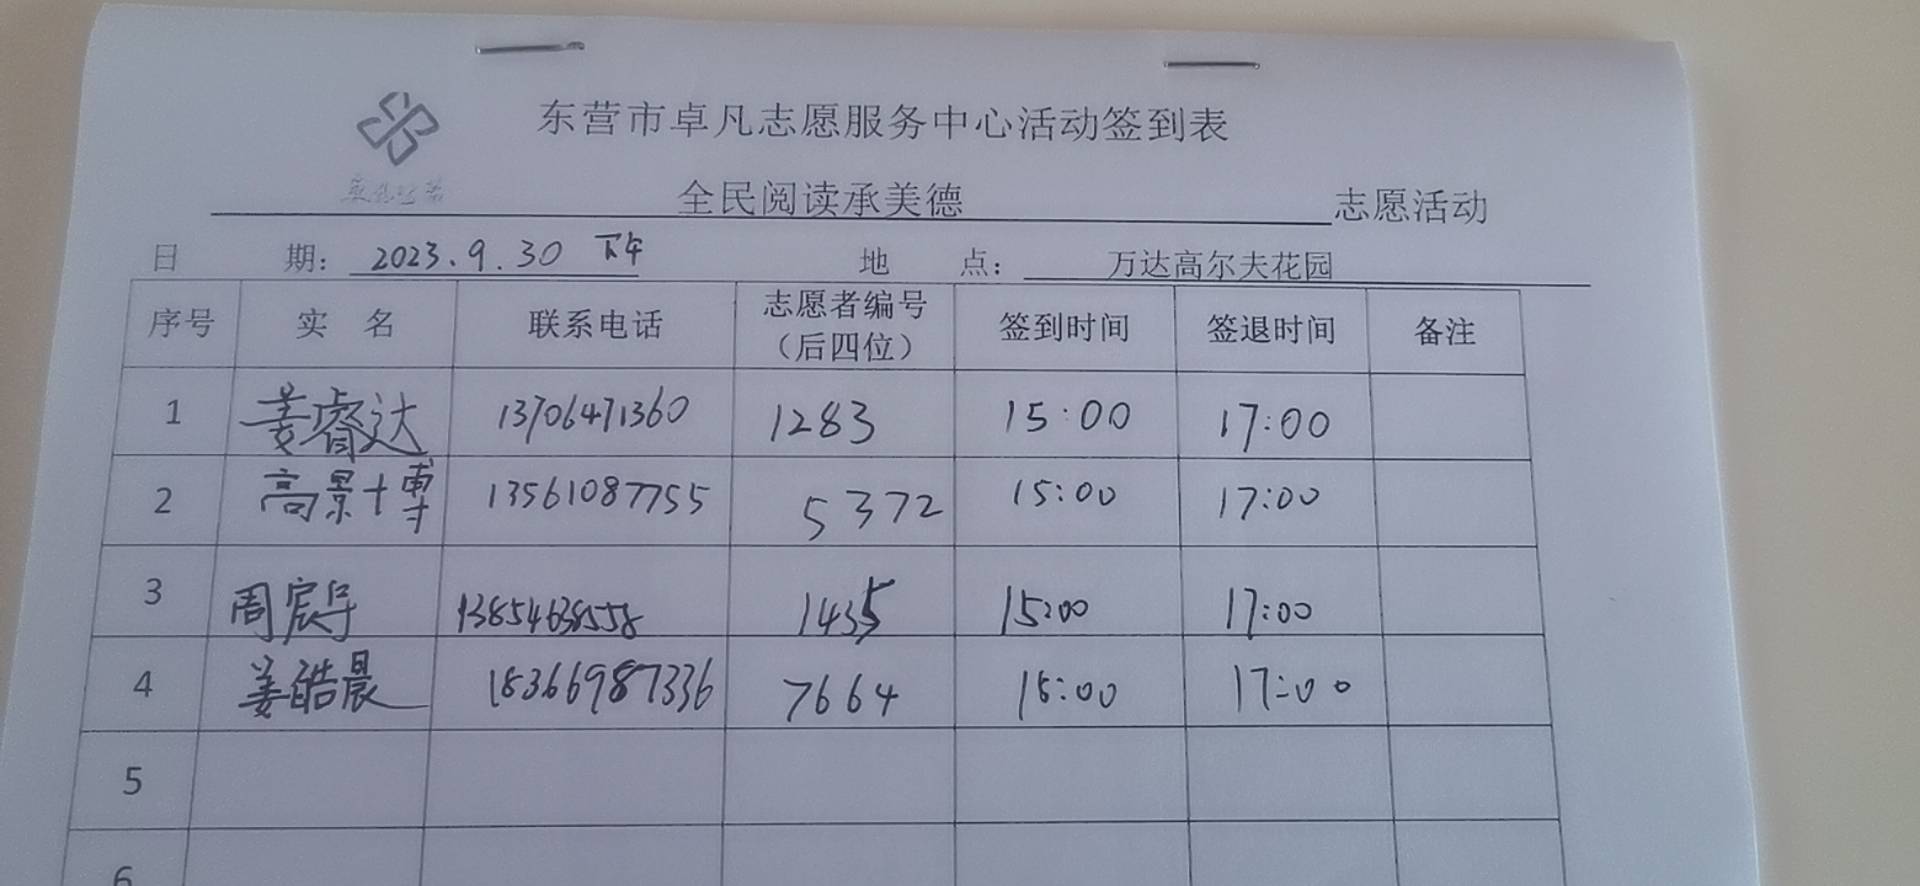 东营市卓凡志愿服务中心活动签到表
全民阅读承美德 志愿活动
日 期： 2023.9.30 下午 地 点： 万达高尔夫花园
序号 实 名 联系电话 志愿者编号（后四位） 签到时间 签退时间 备注
1 姜睿达 13706471360 1283 15:00 17:00
2 高景博 13561087755 5372 15:00 17:00
3 周宸宇 13854638558 1435 15:00 17:00
4 姜皓晨 18366987336 7664 15:00 17:00
5
6